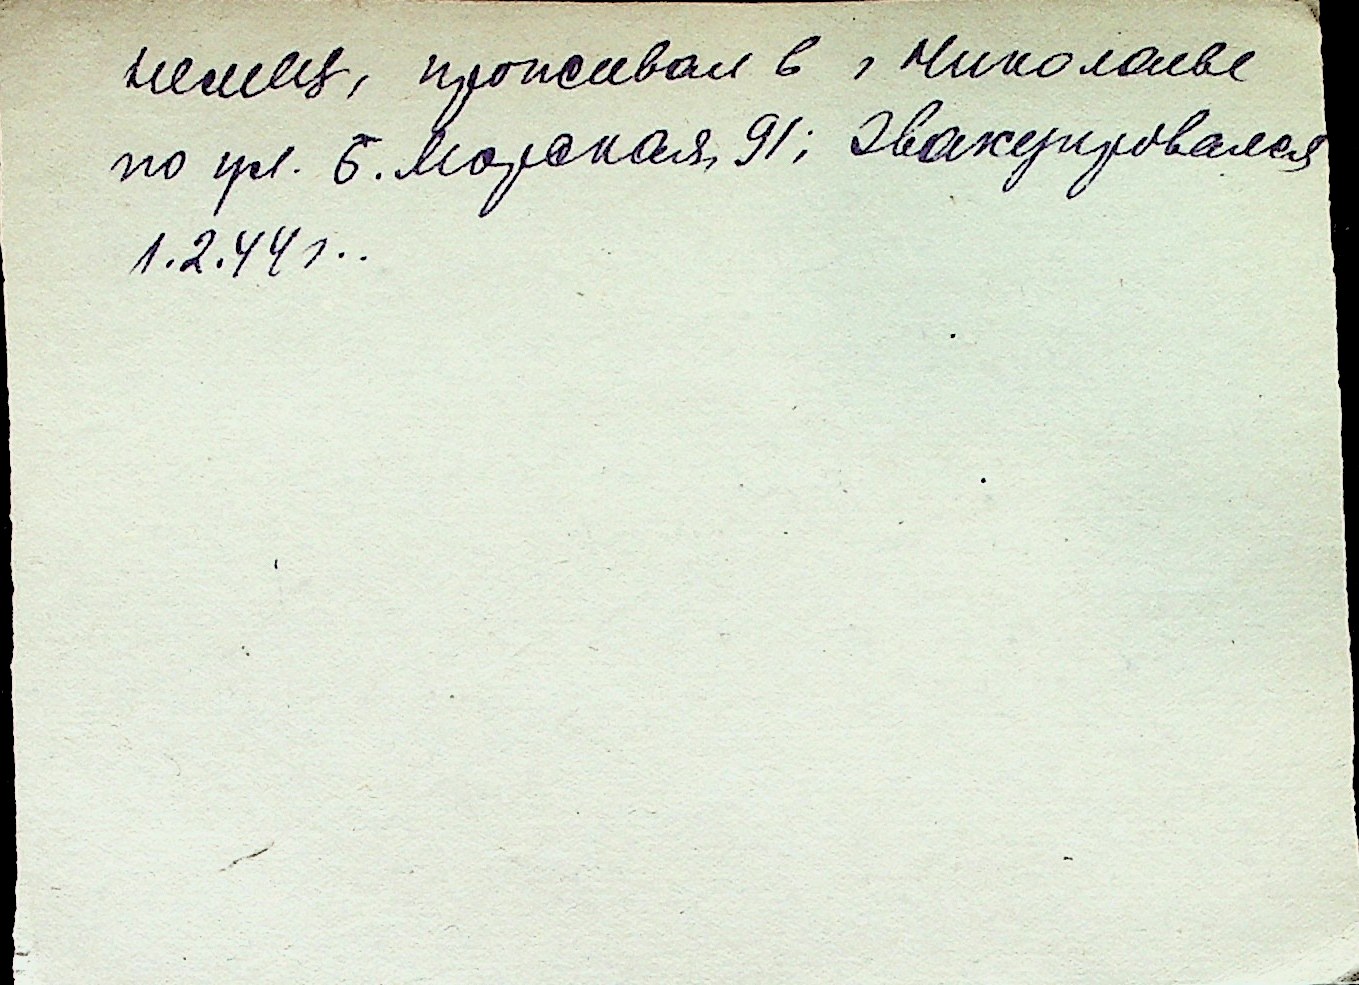 немец, проживал в г Николаеве
по ул. Б. Морская, 91; Эвакуировался
1.2.44 г..